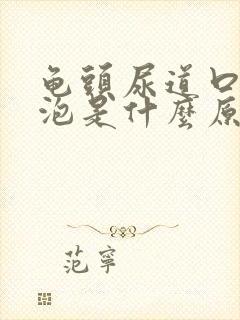 龟頭尿道口
泡是什麼原
范寧